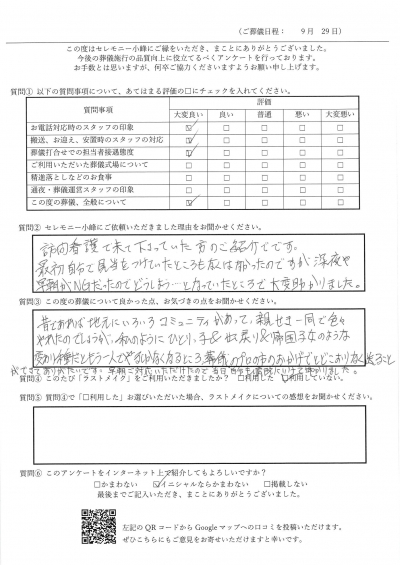 （ご葬儀日程： 9月 29日）
この度はセレモニー小峰にご縁をいただき、まことにありがとうございました。
今後の葬儀施行の品質向上に役立てるべくアンケートを行っております。
お手数とは思いますが、何卒ご協力くださいますようお願い申し上げます。
質問① 以下の質問事項について、あてはまる評価の□にチェックを入れてください。
質問事項 評価
大変良い 良い 普通 悪い 大変悪い
お電話対応時のスタッフの印象 ☑ □ □ □ □
搬送、お迎え、安置時のスタッフの対応 ☑ □ □ □ □
葬儀打合せでの担当者接遇態度 ☑ □ □ □ □
ご利用いただいた葬儀式場について □ □ □ □ □
精進落としなどのお食事 □ □ □ □ □
通夜・葬儀運営スタッフの印象 □ □ □ □ □
この度の葬儀、全般について ☑ □ □ □ □
質問② セレモニー小峰にご依頼いただきました理由をお聞かせください。
訪問看護で来て下さっていた方のご紹介でです。
最初自分で見当をつけていたところも無くは無かったのですが深夜や
早朝がNGだったのでどうしよう…となっていたところで大変助かりました。
質問③ この度の葬儀について良かった点、お気づきの点をお聞かせください。
昔であれば地元にいろいろコミュニティがあって、親せき一同で色々
やれたのでしょうが、私のようにひとり、子&出戻り&帰国子女のような
だともう一人でやるしかなくなるところ
質問④ このたび「ラストメイク」をご利用されましたか？ □利用した ☑利用していない。
質問⑤ 質問④で「□利用した」お選びいただいた場合、ラストメイクについての感想をお聞かせください。
質問⑥ このアンケートをインターネット上で紹介してもよろしいですか？
□かまわない ☑イニシャルならかまわない □掲載しない
最後までご記入いただき、まことにありがとうございました。
左記のQRコードからGoogleマップへの口コミを投稿いただけます。
ぜひこちらにもご意見をお寄せいただけますと幸いです。